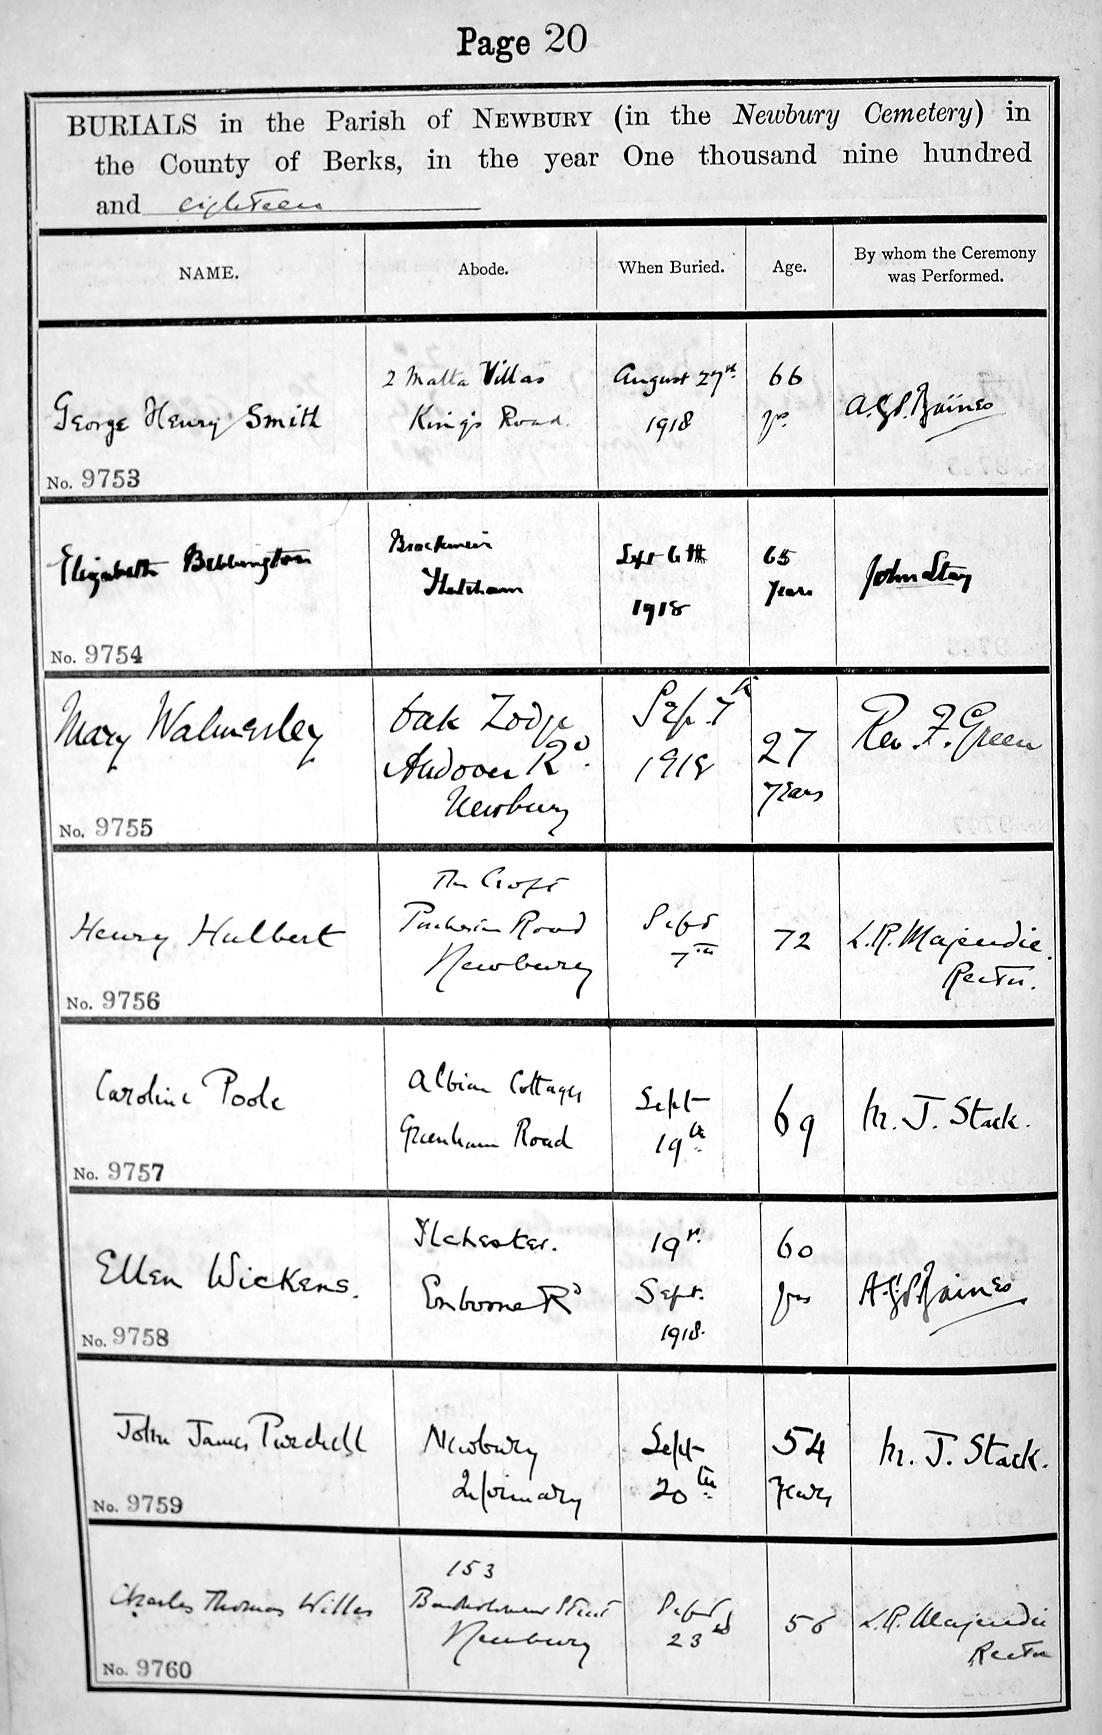 Page 20
BURIALS in the Parish of NEWBURY (in the Newbury Cemetery) in
the County of Berks, in the year One thousand nine hundred
and eighteen
NAME.
Abode.
When Buried.
Age.
By whom the Ceremony
was Performed.
George Henry Smith
No. 9753
2 Malta Villas
King's Road
August 27th
1918
66
yrs
A.G.P. Baines
Elizabeth Bebbington
No. 9754
Thatcham
Sept 6th
1918
65
years
John Stay
Mary Walmesley
No. 9755
Oak Lodge
Andover Rd.
Newbury
Sep. 7th
1918
27
years
Rev. F. Green
Henry Hulbert
No. 9756
The Croft
Road
Newbury
Sept
7th
72
L.R. Majendie.
Rector.
Caroline Poole
No. 9757
Albion Cottages
Greenham Road
Sept
19th
69
M. J. Stack.
Ellen Wickens.
No. 9758
Ilchester.
Enborne Rd
19th
Sept.
1918.
60
yrs
A.G.P. Baines
John James Purchell
No. 9759
Newbury
Infirmary
Sept
20th
54
years
M. J. Stack.
Charles Thomas Willes
No. 9760
153
Bartholomew Street
Newbury
Sept
23rd
56
L.R. Majendie
Rector